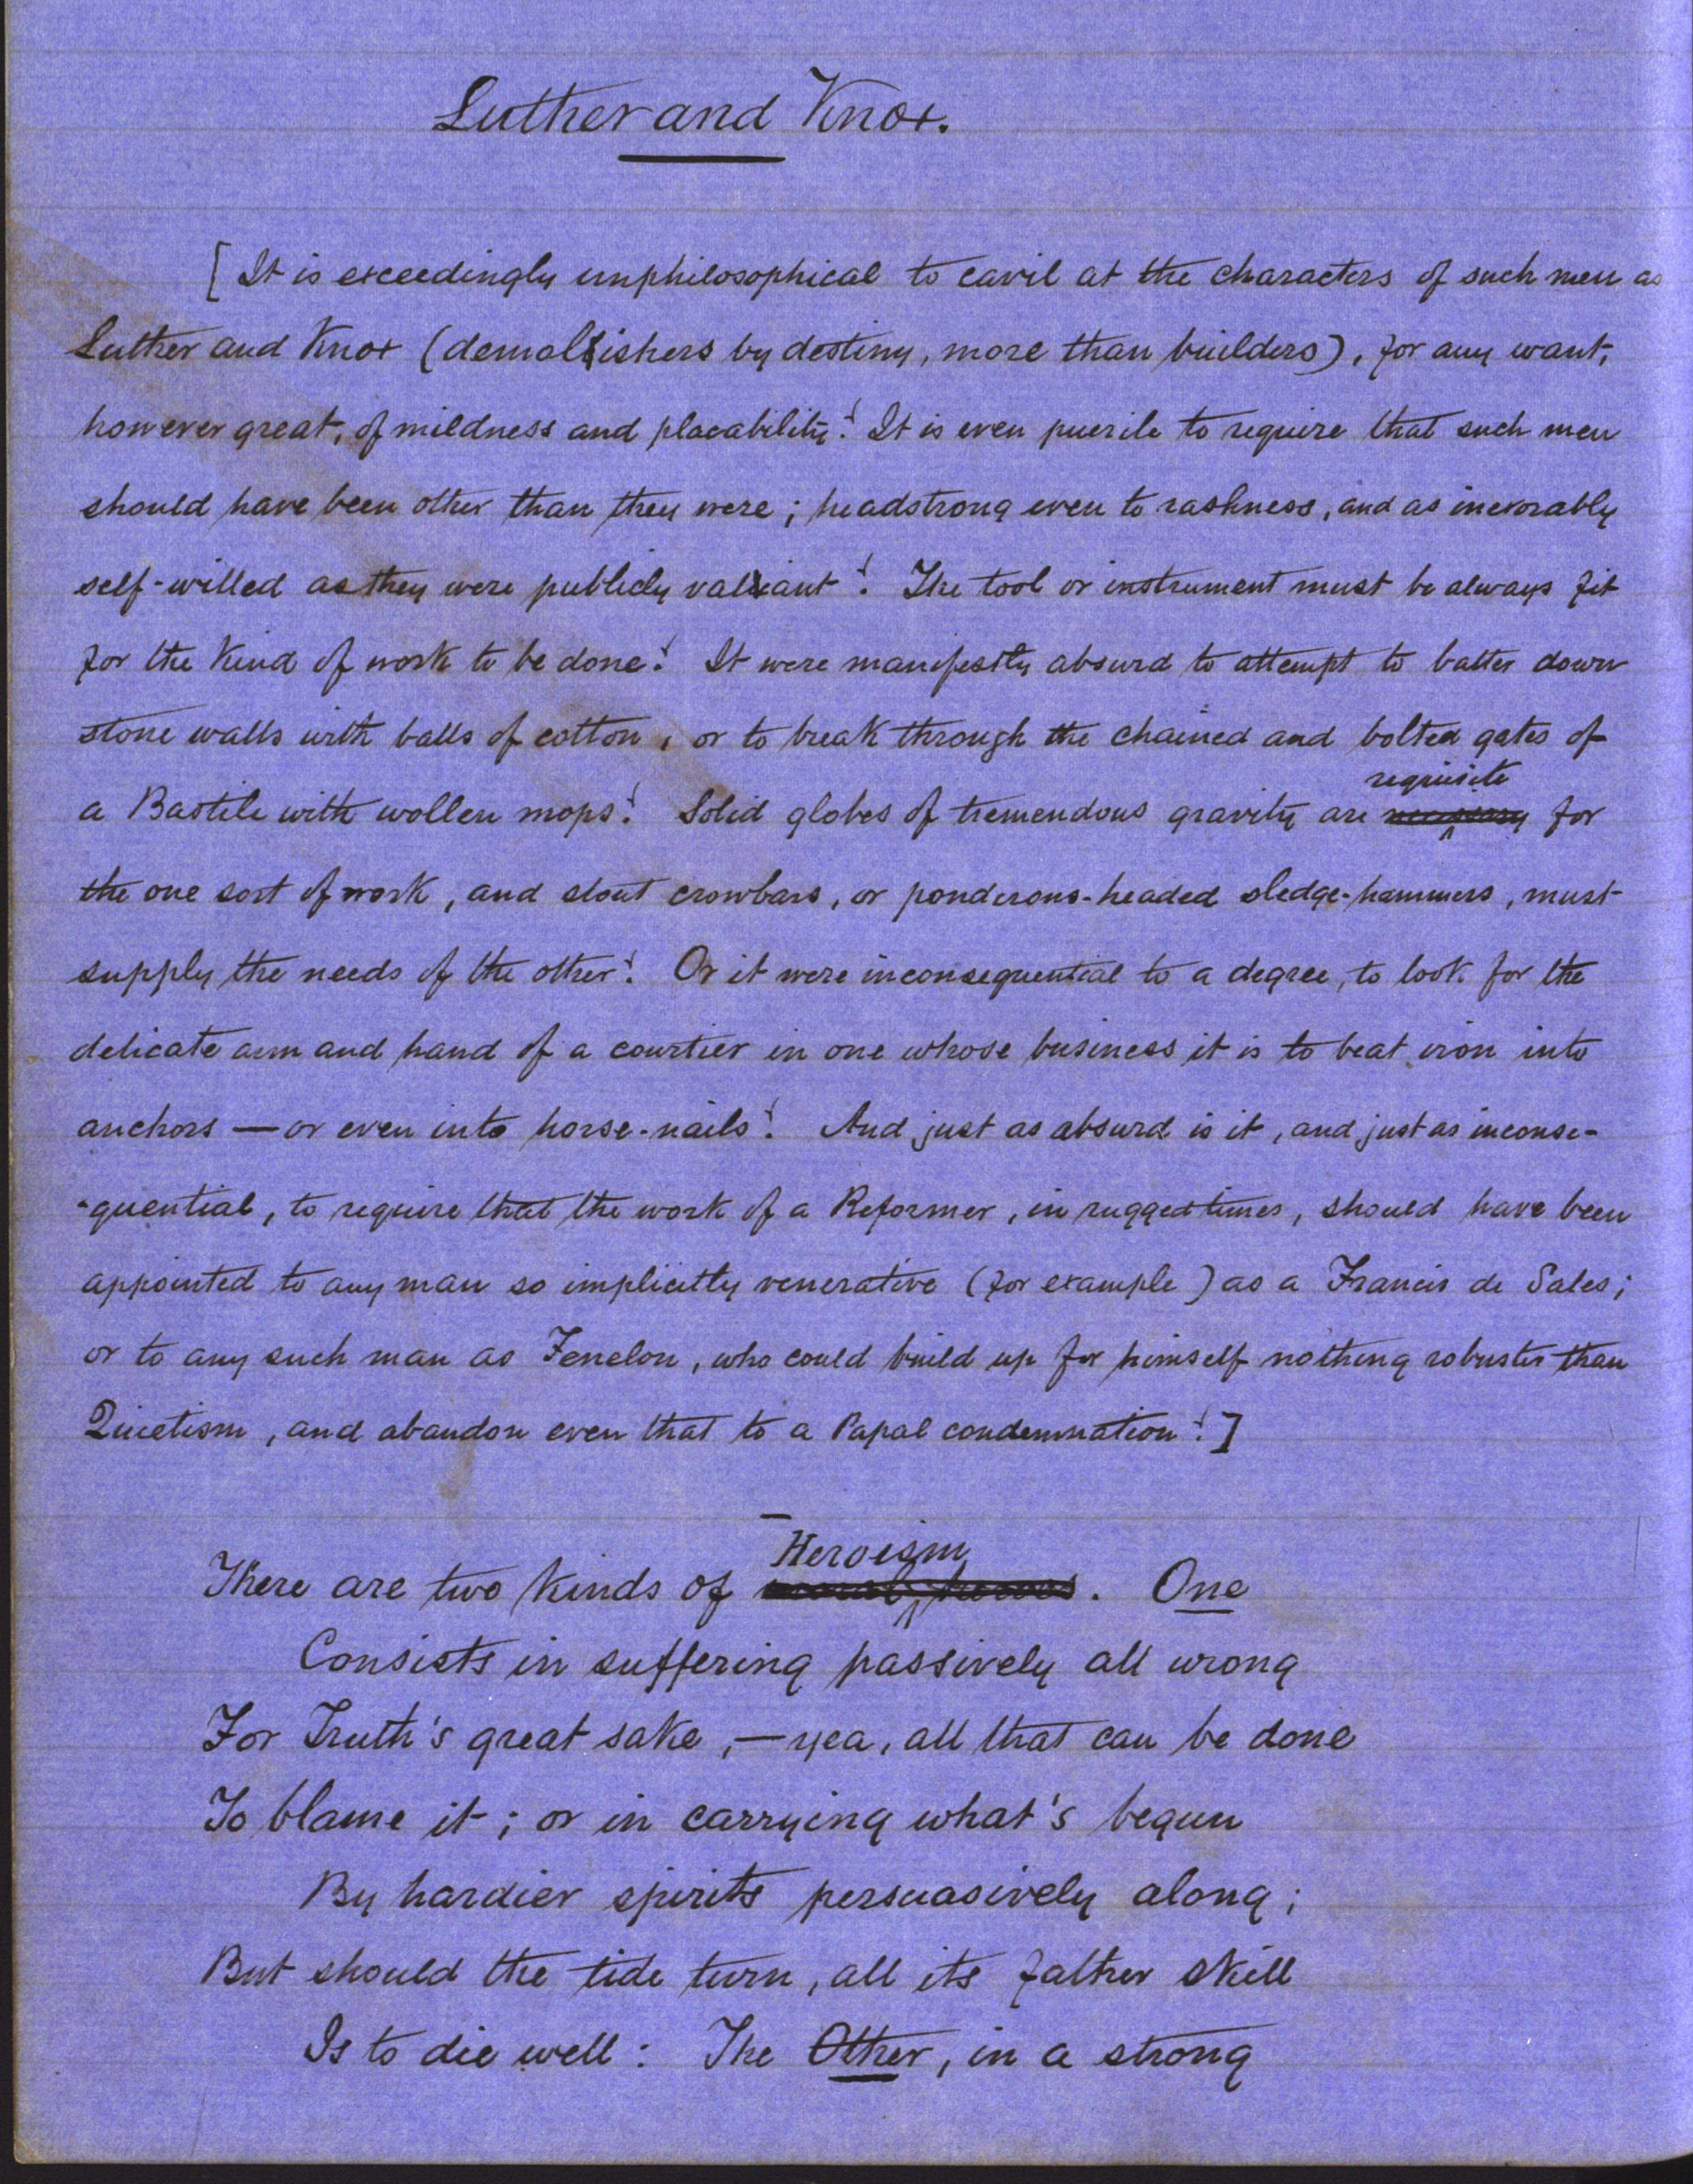 Luther and Knox.
[It is exceedingly unphilosophical to cavil at the characters of such men as
Luther and Knox (demolishers by destiny, more than builders), for any want,
however great, of mildness and placability! It is even puerile to require that such men
should have been other than they were; headstrong even to rashness, and as inexorably
self-willed as they were publicly valiant! The tool or instrument must be always fit
for the kind of work to be done! It were manifestly absurd to attempt to batter down
stone walls with balls of cotton, or to break through the chained and bolted gates of
a Bastile with wollen mops! Solid globes of tremendous gravity are requisite for
the one sort of work, and stout crowbars, or ponderous-headed sledge-hammers, must
supply the needs of the other! Or it were inconsequential to a degree, to look for the
delicate arm and hand of a courtier in one whose business it is to beat iron into
anchors — or even into horse-nails! And just as absurd is it, and just as inconse-
-quential, to require that the work of a Reformer, in rugged times, should have been
appointed to any man so implicitly venerative (for example) as a Francis de Sales;
or to any such man as Fenelon, who could build up for himself nothing robuster than
Quietism, and abandon even that to a Papal condemnation!]
There are two kinds of Heroism. One
Consists in suffering passively all wrong
For Truth's great sake, — yea, all that can be done
To blame it; or in carrying what's begun
By hardier spirits persuasively along;
But should the tide turn, all its father skill
Is to die well: The Other, in a strong